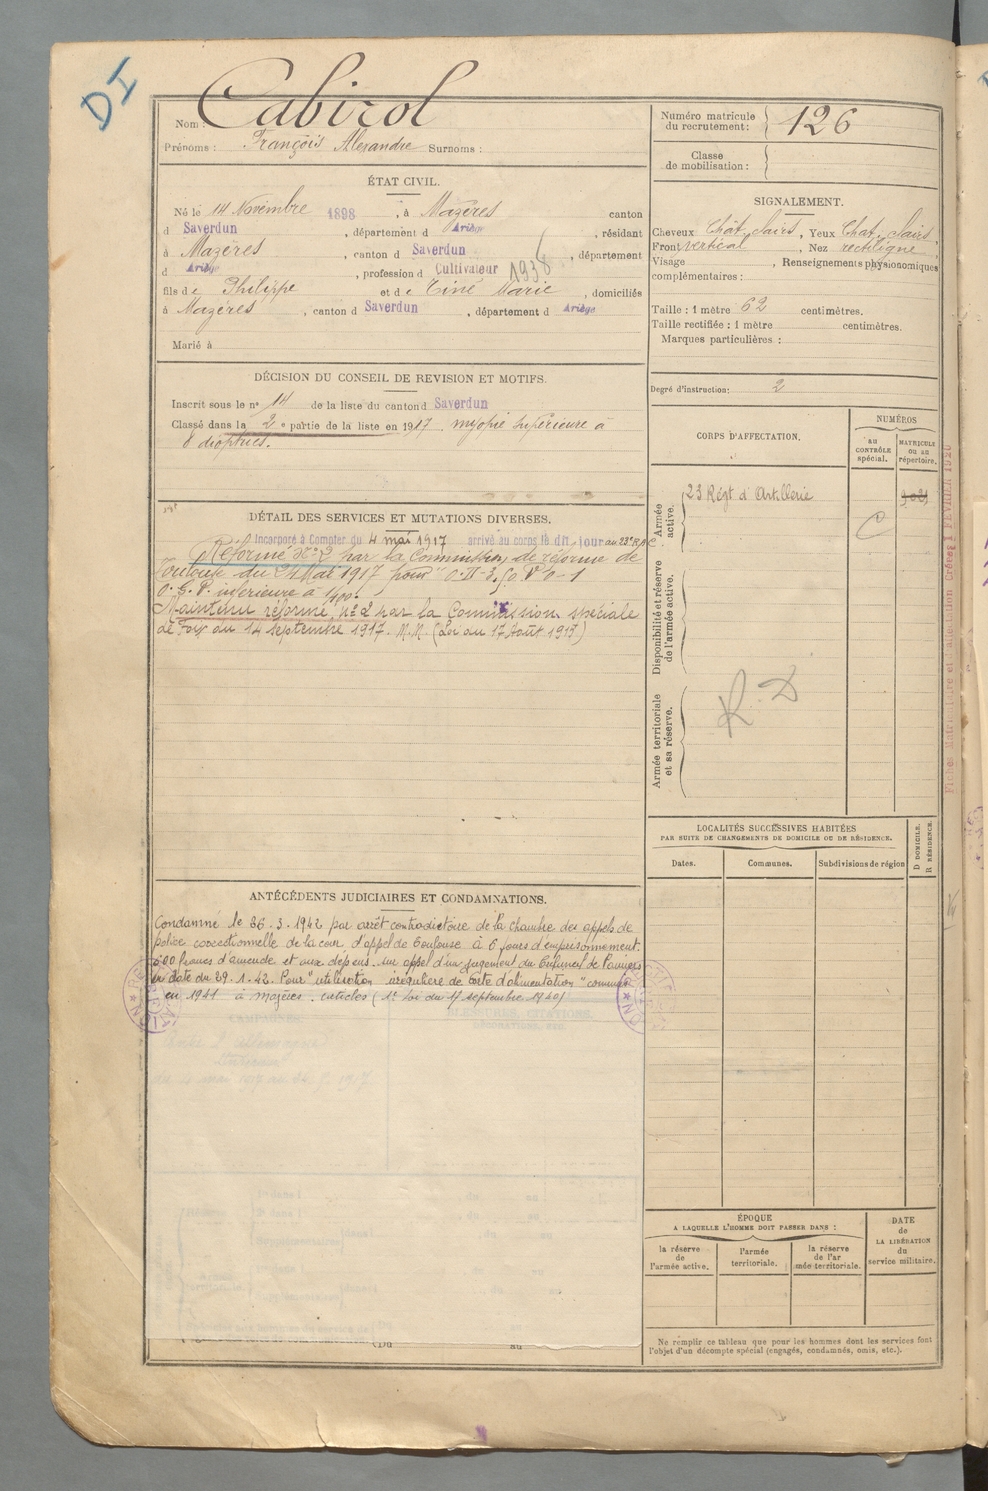 DI
Nom : Cabirol
Prénoms : François Alexandre Surnoms :
ÉTAT CIVIL.
Né le 14 Novembre 1898, à Mazères canton
d Saverdun, département d Ariège, résidant
à Mazères, canton d Saverdun, département
d Ariège, profession d Cultivateur 1938
fils de Philippe et de Tiné Marie, domiciliés
à Mazères, canton d Saverdun, département d Ariège
Marié à
DÉCISION DU CONSEIL DE REVISION ET MOTIFS.
Inscrit sous le n° 14 de la liste du canton d Saverdun
Classé dans la 2e partie de la liste en 1917. myopie supérieure à
8 dioptries.
DÉTAIL DES SERVICES ET MUTATIONS DIVERSES.
Incorporé à Compter du 4 mai 1917 arrivé au corps le dit jour au 23e R.A.C
Réformé N°2 par la Commission de réforme de
Toulouse du 24 Mai 1917 pour
O. G. V. inférieure à
Maintenu réformé n°2 par la Commission spéciale
de Foix du 14 septembre 1917. N.M. (Loi du 17 Août 1917)
ANTÉCÉDENTS JUDICIAIRES ET CONDAMNATIONS.
Condamné le 26.3.1942 par arrêt contradictoire de la chambre des appels de
police correctionnelle de la cour d'appel de Toulouse à 6 jours d'emprisonnement
500 francs d'amende et aux dépens. sur appel d'un jugement du Tribunal de Pamiers
en date du 29.1.42. Pour "utilisation irrégulière de carte d'alimentation" commis
en 1941 à Mazères. articles (1er Loi du 17 septembre 1940)
CAMPAGNES.
BLESSURES, CITATIONS,
DÉCORATIONS, ETC.
(Du au
Numéro matricule
du recrutement : 126
Classe
de mobilisation :
SIGNALEMENT.
Cheveux Chât. clairs, Yeux Chat. clairs.
Front vertical, Nez rectiligne
Visage , Renseignements physionomiques
complémentaires :
Taille : 1 mètre 62 centimètres.
Taille rectifiée : 1 mètre centimètres.
Marques particulières :
Degré d'instruction : 2
CORPS D'AFFECTATION.
NUMÉROS
au
CONTRÔLE
spécial.
MATRICULE
ou au
répertoire.
Armée
active.
23 Régt d'Artillerie
C
Disponibilité et réserve
de l'armée active.
Armée territoriale
et sa réserve.
R.D
LOCALITÉS SUCCESSIVES HABITÉES
PAR SUITE DE CHANGEMENTS DE DOMICILE OU DE RÉSIDENCE.
Dates.
Communes.
Subdivisions de région
D DOMICILE.
R RÉSIDENCE.
ÉPOQUE
A LAQUELLE L'HOMME DOIT PASSER DANS :
DATE
de
LA LIBÉRATION
du
service militaire.
la réserve
de
l'armée active.
l'armée
territoriale.
la réserve
de l'ar
mée territoriale.
Ne remplir ce tableau que pour les hommes dont les services font
l'objet d'un décompte spécial (engagés, condamnés, omis, etc.).